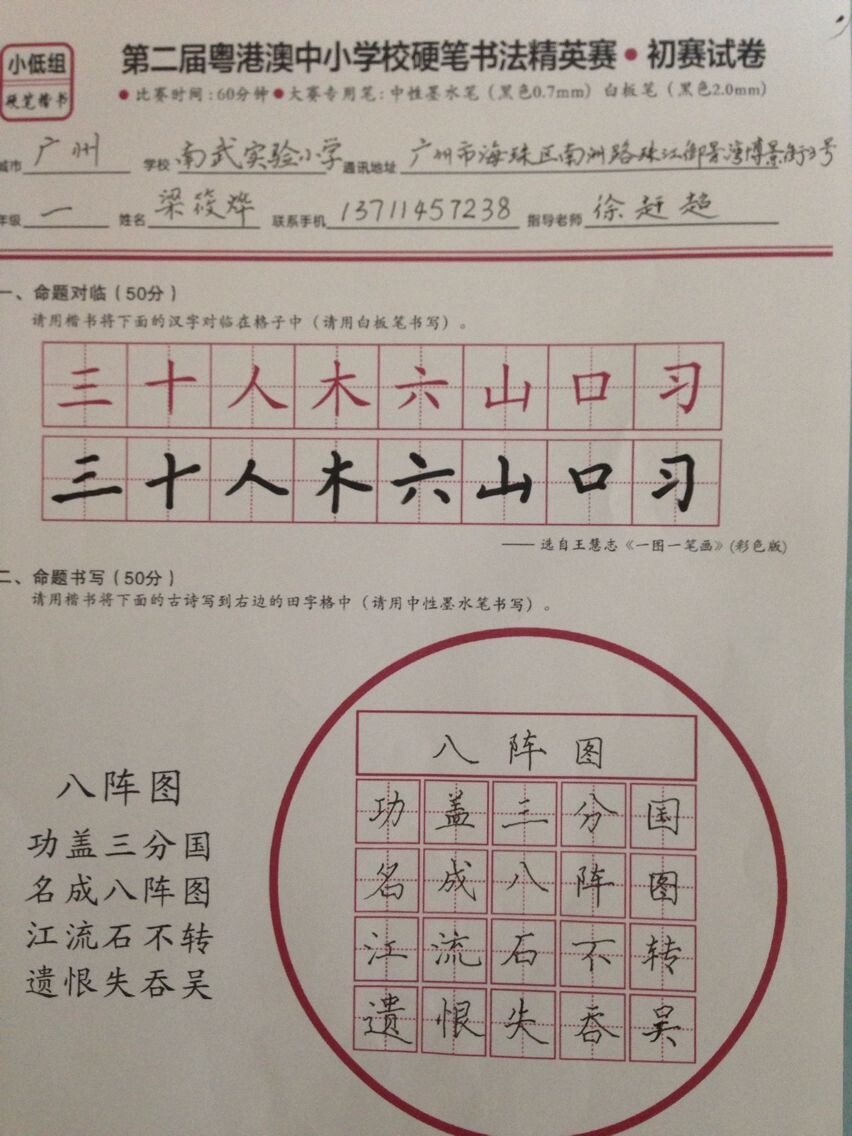 小低组
硬笔楷书
第二届粤港澳中小学校硬笔书法精英赛·初赛试卷
●比赛时间:60分钟●大赛专用笔:中性墨水笔(黑色0.7mm) 白板笔(黑色2.0mm)
城市 广州 学校 南武实验小学 通讯地址 广州市海珠区南洲路珠江御景湾博景街3号
年级 一 姓名 梁筱烨 联系手机 13711457238 指导老师 徐赶超
一、命题对临(50分)
请用楷书将下面的汉字对临在格子中(请用白板笔书写)。
三十人木六山口习
三十人木六山口习
——选自王慧志《一图一笔画》(彩色版)
二、命题书写(50分)
请用楷书将下面的古诗写到右边的田字格中(请用中性墨水笔书写)。
八阵图
功盖三分国
名成八阵图
江流石不转
遗恨失吞吴
八阵图
功盖三分国
名成八阵图
江流石不转
遗恨失吞吴